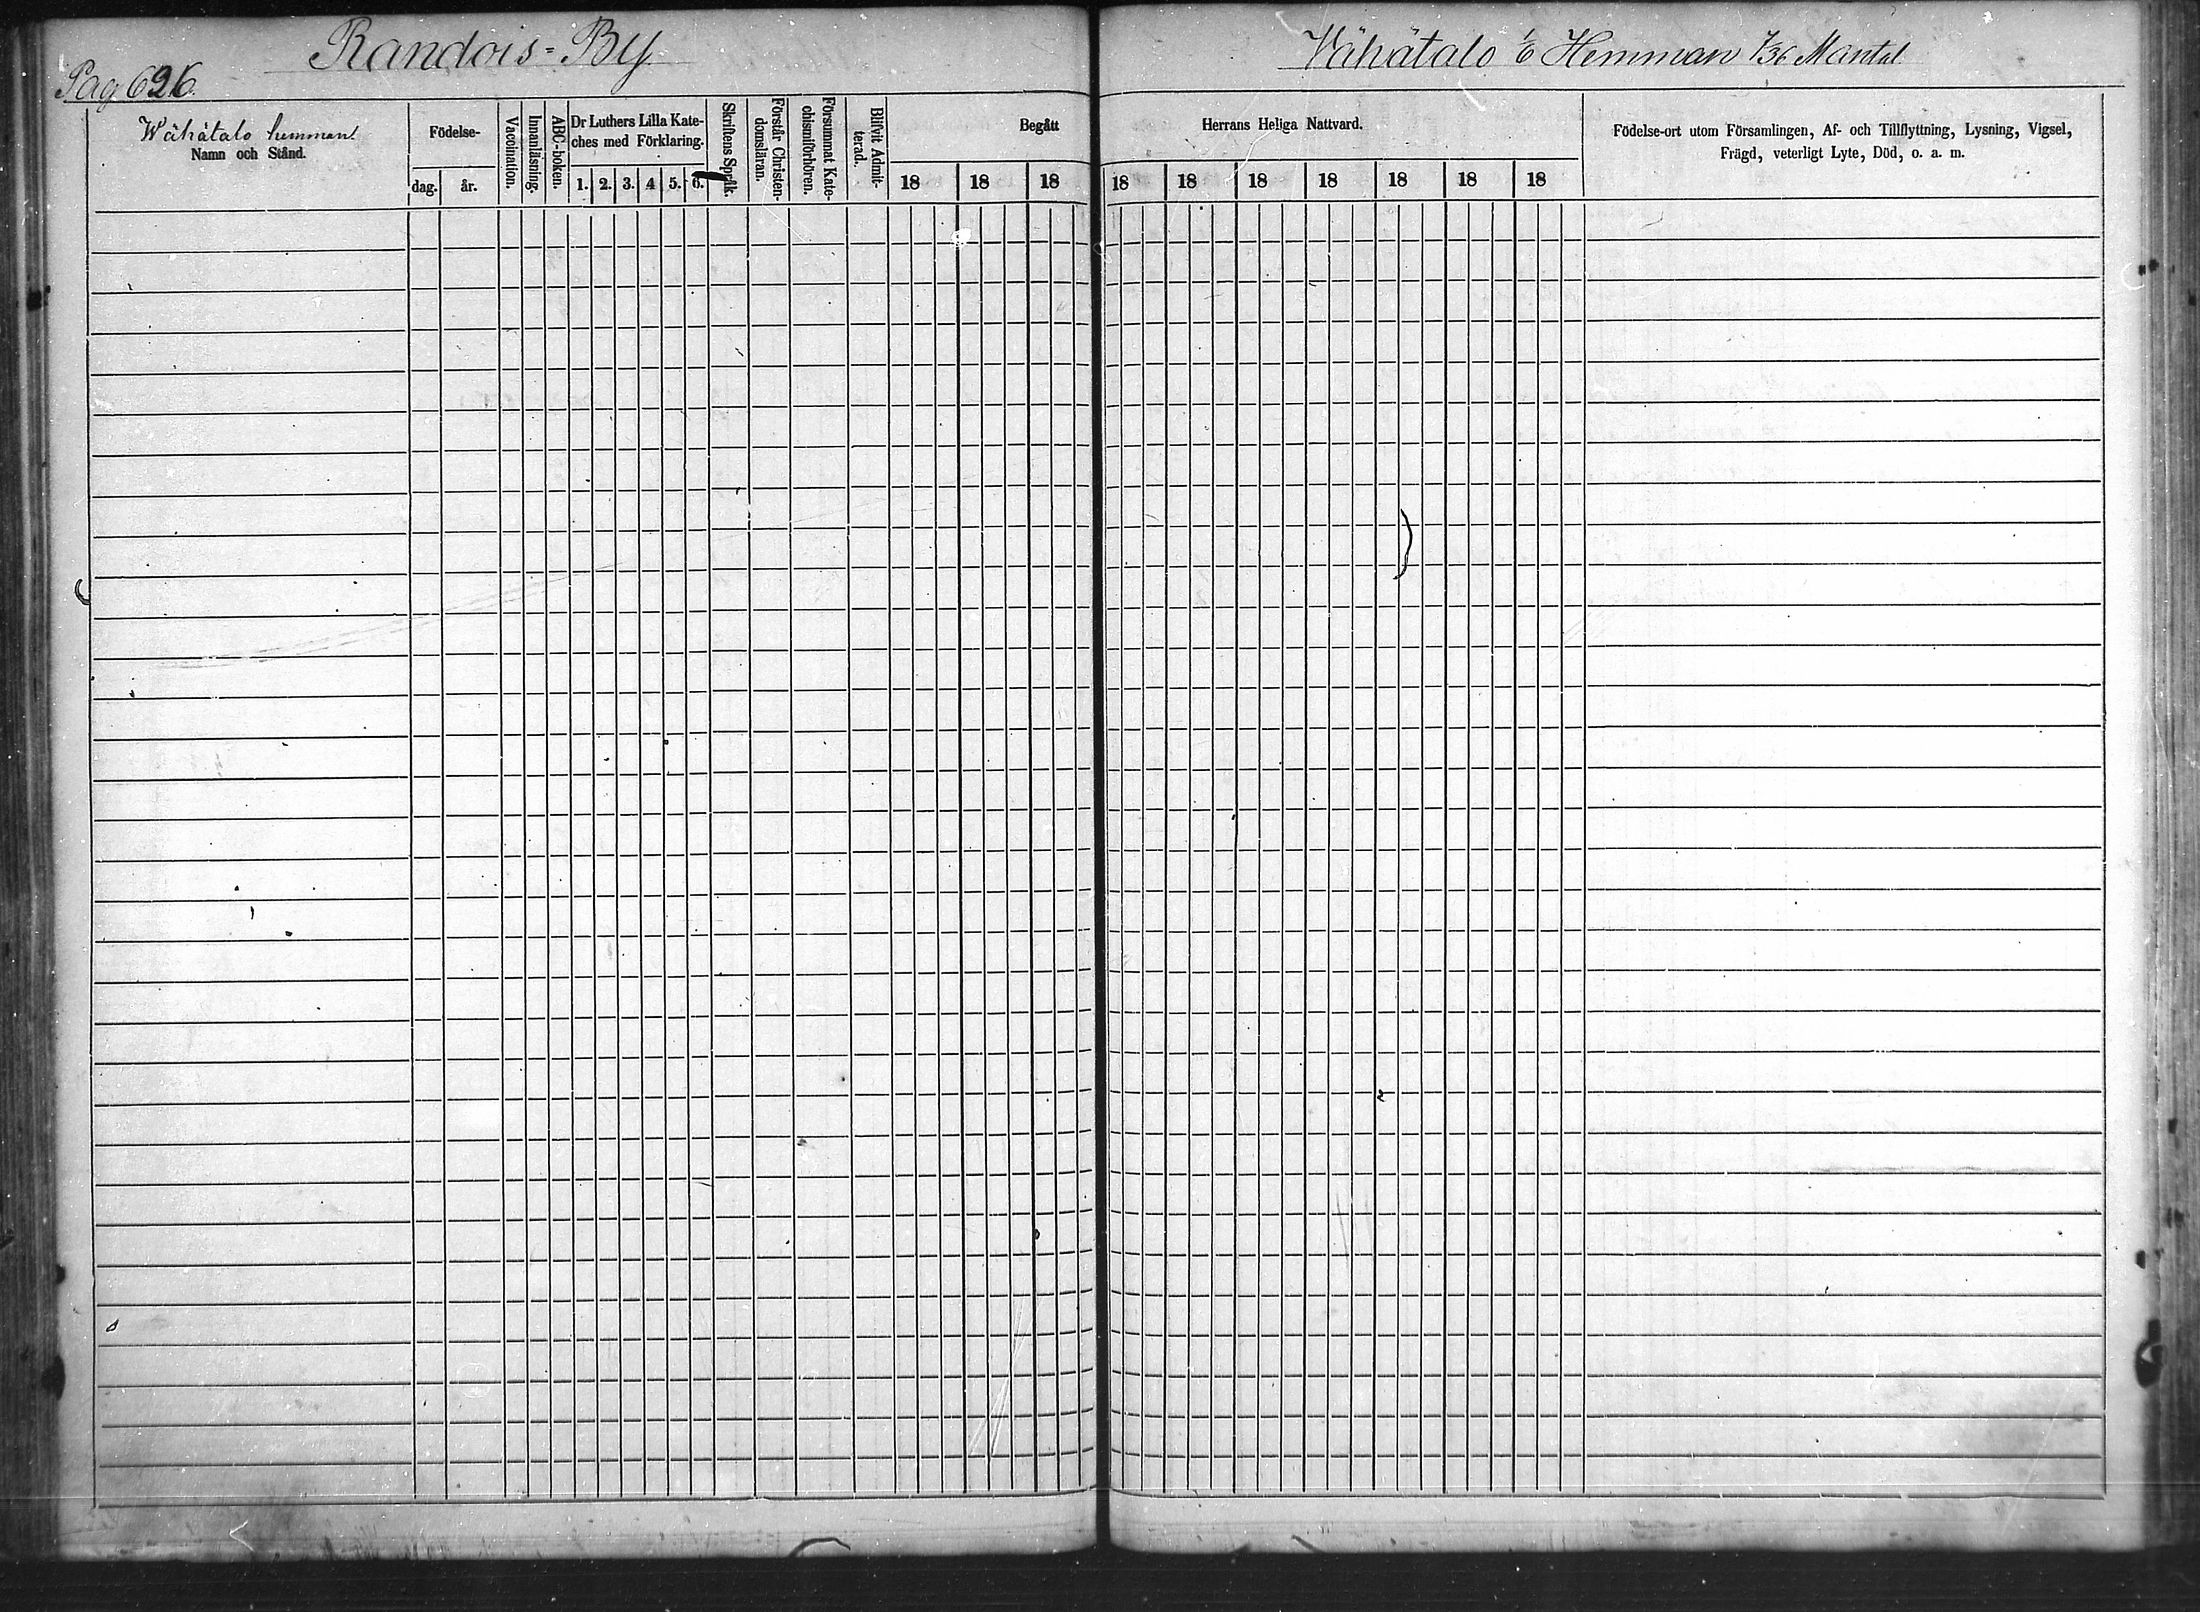 Randois=By
Wähätalo 1/6 Hemman 1/36 Mantal
Pag 626.
Wähätalo hemman
Namn och Stånd.
Födelse-
dag. år.
Vaccination.
Innanläsning.
ABC-boken.
Dr Luthers Lilla Kate-
ches med Förklaring.
1. 2. 3. 4 5. 6.
Skriftens Språk.
Förstår Christen-
domsläran.
Försummat Kate-
chismiförhören.
Blifvit Admit-
terad.
Begått Herrans Heliga Nattvard.
18 18 18 18 18 18 18 18 18 18
Födelse-ort utom Församlingen, Af- och Tillflyttning, Lysning, Vigsel,
Frägd, veterligt Lyte, Död, o. a. m.